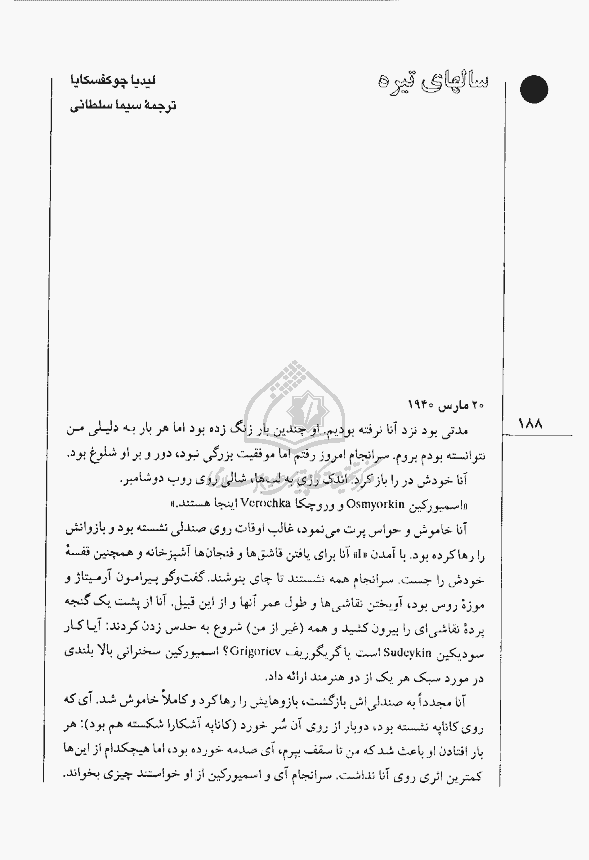 سالهای تیره
لیدیا چوکفسکایا
ترجمهٔ سیما سلطانی
۱۸۸
۲۰ مارس ۱۹۴۰
مدتی بود نزد آنا نرفته بودیم. او چندین بار زنگ زده بود اما هر بار به دلیلی من
نتوانسته بودم بروم. سرانجام امروز رفتم اما موفقیت بزرگی نبود، دور و بر او شلوغ بود.
آنا خودش در را باز کرد. اندک رژی به لب‌ها، شالی روی روب دوشامبر.
«اسمیورکین Osmyorkin و وروچکا Verochka اینجا هستند.»
آنا خاموش و حواس پرت می‌نمود، غالب اوقات روی صندلی نشسته بود و بازوانش
را رها کرده بود. با آمدن «I» آنا برای یافتن قاشق‌ها و فنجان‌ها آشپزخانه و همچنین قفسهٔ
خودش را جست. سرانجام همه نشستند تا چای بنوشند. گفت‌وگو پیرامون آرمیتاژ و
موزهٔ روس بود، آویختن نقاشی‌ها و طول عمر آنها و از این قبیل. آنا از پشت یک گنجه
پردهٔ نقاشی‌ای را بیرون کشید و همه (غیر از من) شروع به حدس زدن کردند: آیا کار
سودیکین Sudeykin است یا گریگوریف Grigoriev؟ اسمیورکین سخنرانی بالا بلندی
در مورد سبک هر یک از دو هنرمند ارائه داد.
آنا مجدداً به صندلی‌اش بازگشت، بازوهایش را رها کرد و کاملاً خاموش شد. آی که
روی کاناپه نشسته بود، دوبار از روی آن سُر خورد (کاناپه آشکارا شکسته هم بود): هر
بار افتادن او باعث شد که من تا سقف بپرم، آی صدمه خورده بود، اما هیچکدام از این‌ها
کمترین اثری روی آنا نداشت. سرانجام آی و اسمیورکین از او خواستند چیزی بخواند.